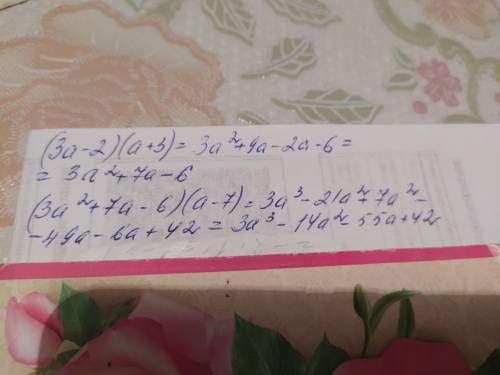 (3a-2)(a+3)= 3a²+9a-2a-6=
= 3a²+7a-6
(3a²+7a-6)(a-7)=3a³-21a²+7a²-
-49a-6a+42 = 3a³-14a²-55a+42